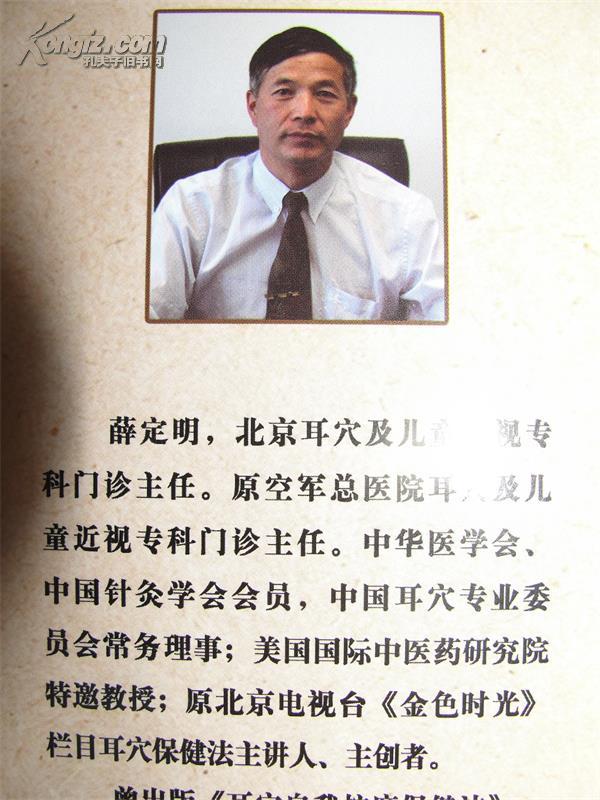 Kongfz.com
孔夫子旧书网
薛定明，北京耳穴及儿童 视专
科门诊主任。原空军总医院耳穴及儿
童近视专科门诊主任。中华医学会、
中国针灸学会会员，中国耳穴专业委
员会常务理事；美国国际中医药研究院
特邀教授；原北京电视台《金色时光》
栏目耳穴保健法主讲人、主创者。
曾出版《耳穴自我